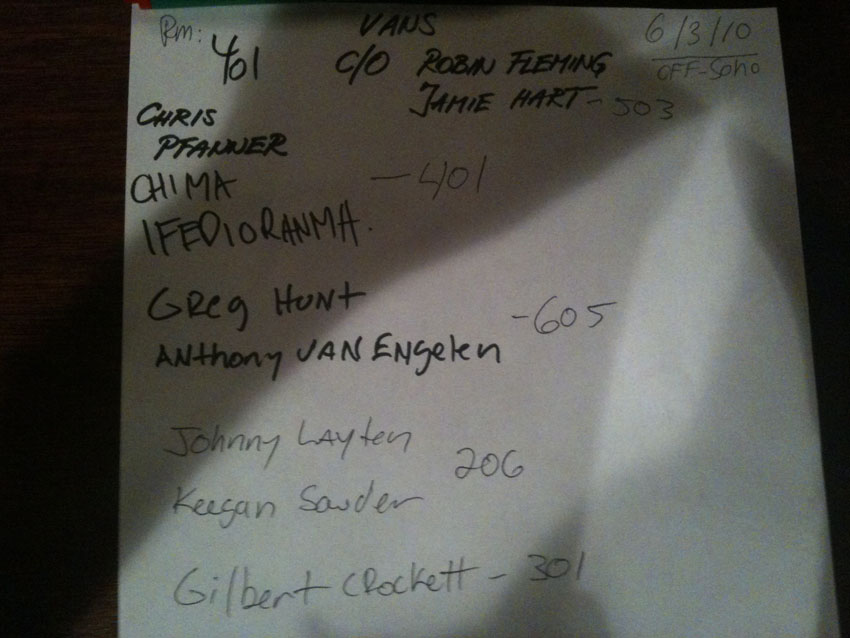 Rm: 401 VANS 6/3/10
C/O ROBIN FLEMING OFF-Soho
JAMIE HART - 503
CHRIS
PFANNER
CHIMA - 401
IFEDIORANMA.
Greg HUNt
ANthony VAN ENgelen - 605
Johnny LAyten
Keegan Sauder 206
Gilbert CRockett - 301